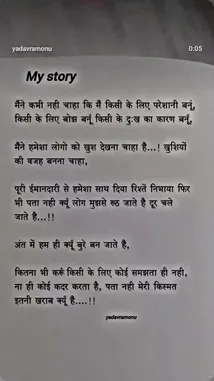 yadavramonu
0:05
My story
मैंने कभी नही चाहा कि मैं किसी के लिए परेशानी बनूं,
किसी के लिए बोझ बनूँ किसी के दुःख का कारण बनूँ,
मैंने हमेशा लोगो को खुश देखना चाहा है...! खुशियों
की वजह बनना चाहा,
पूरी ईमानदारी से हमेशा साथ दिया रिश्तें निभाया फिर
भी पता नही क्यूँ लोग मुझसे रूठ जाते है दूर चले
जाते है...!!
अंत में हम ही क्यूँ बुरे बन जाते है,
कितना भी करूँ किसी के लिए कोई समझता ही नही,
ना ही कोई कदर करता है, पता नही मेरी किस्मत
इतनी खराब क्यूँ है....!!
yadavramonu